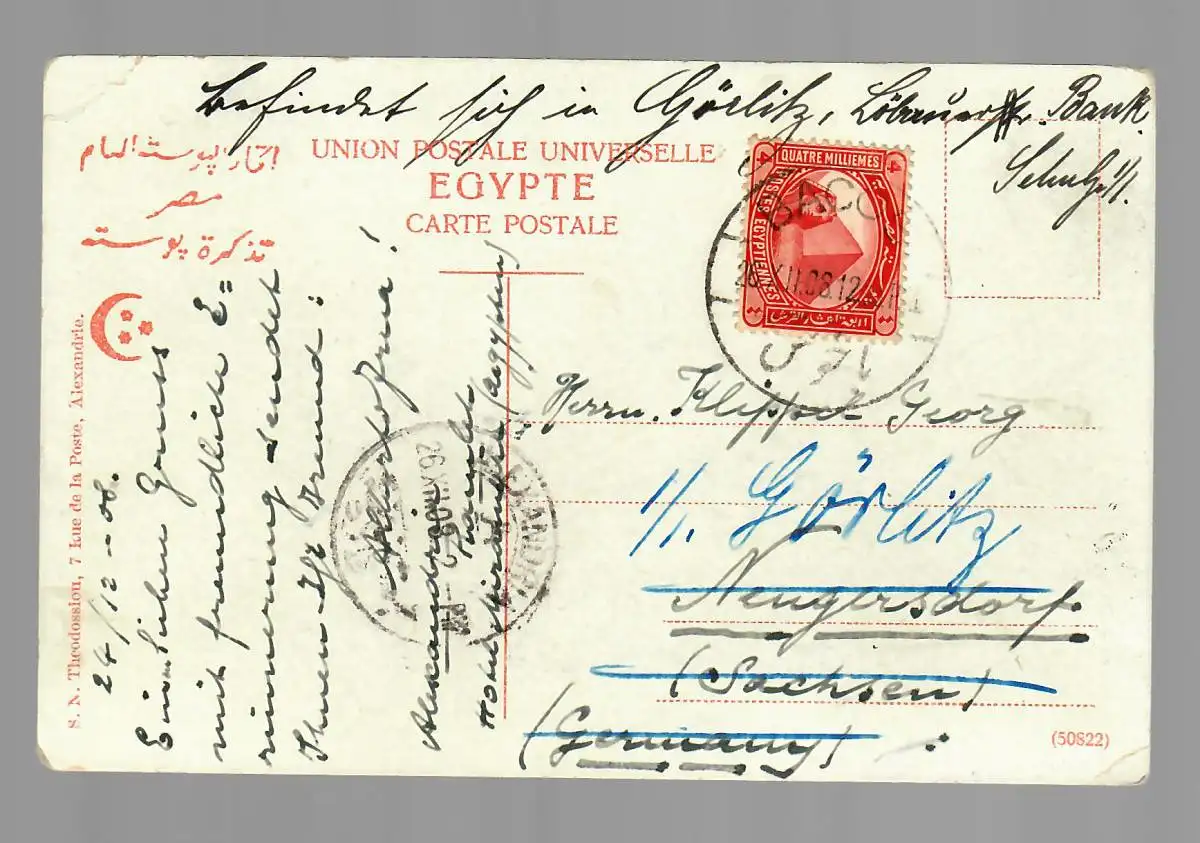 befindet sich in Görlitz, Löbauerstr. Bank.
Schulze 1/1.
اتحاد البوستة العام
مصر
تذكرة بوسته
UNION POSTALE UNIVERSELLE
EGYPTE
CARTE POSTALE
QUATRE MILLIEMES
4
4
POSTES EGYPTIENNES
26 XII.08.12
S. N. Theodossiou, 7 Rue de la Poste, Alexandrie.
24/12-08.
Einen lieben Gruss
mit freundliche E=
rinnerung sendet
Ihnen Ihr Freund:
Arthur
Alexandrien
Hotel
(Aegypten)
26 XII 08
ALEXANDRIA
Herrn. Klippel Georg
1/1. Görlitz
Neugersdorf.
(Sachsen)
(Germany)
(50822)